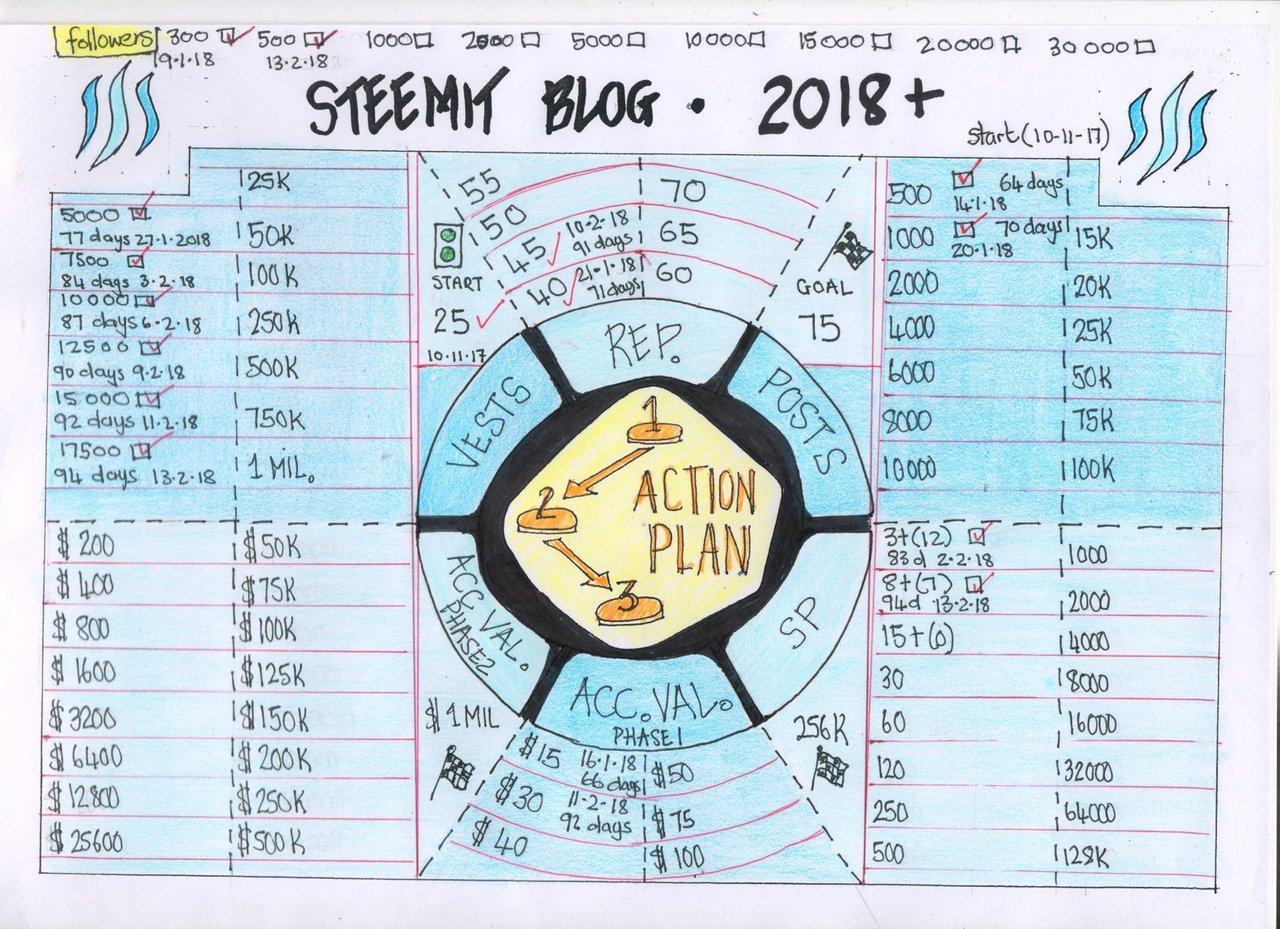 followers 300 500 1000 2500 5000 10000 15000 20000 30000
19.1.18 13.2.18
STEEMIT BLOG . 2018+
start (10-11-17)
25K
5000
77 days 27-1-2018
50K
7500
84 days 3-2-18
100K
10000
87 days 6-2-18
250K
12500
90 days 9-2-18
500K
15000
92 days 11-2-18
750K
17500
94 days 13-2-18
1 MIL.
START
25
10.11.17
55
50
45
10-2-18
91 days
40
21-1-18
71 days
70
65
60
GOAL
75
500
64 days
14.1.18
1000
70 days
20.1.18
2000
4000
6000
8000
10000
15K
20K
25K
50K
75K
100K
REP.
VESTS
POSTS
1
2
3
ACTION
PLAN
ACC. VAL.
PHASE2
SP
ACC. VAL.
PHASE 1
$ 200
$ 400
$ 800
$ 1600
$ 3200
$ 6400
$ 12800
$ 25600
$50K
$75K
$100K
$125K
$150K
$200K
$250K
$500K
$ 1 MIL
$15
16-1-18
66 days
$30
11-2-18
92 days
$ 40
$50
$ 75
$ 100
256K
3+(12)
83d 2-2-18
8+(7)
94d 13-2-18
15+(0)
30
60
120
250
500
1000
2000
4000
8000
16000
32000
64000
128K